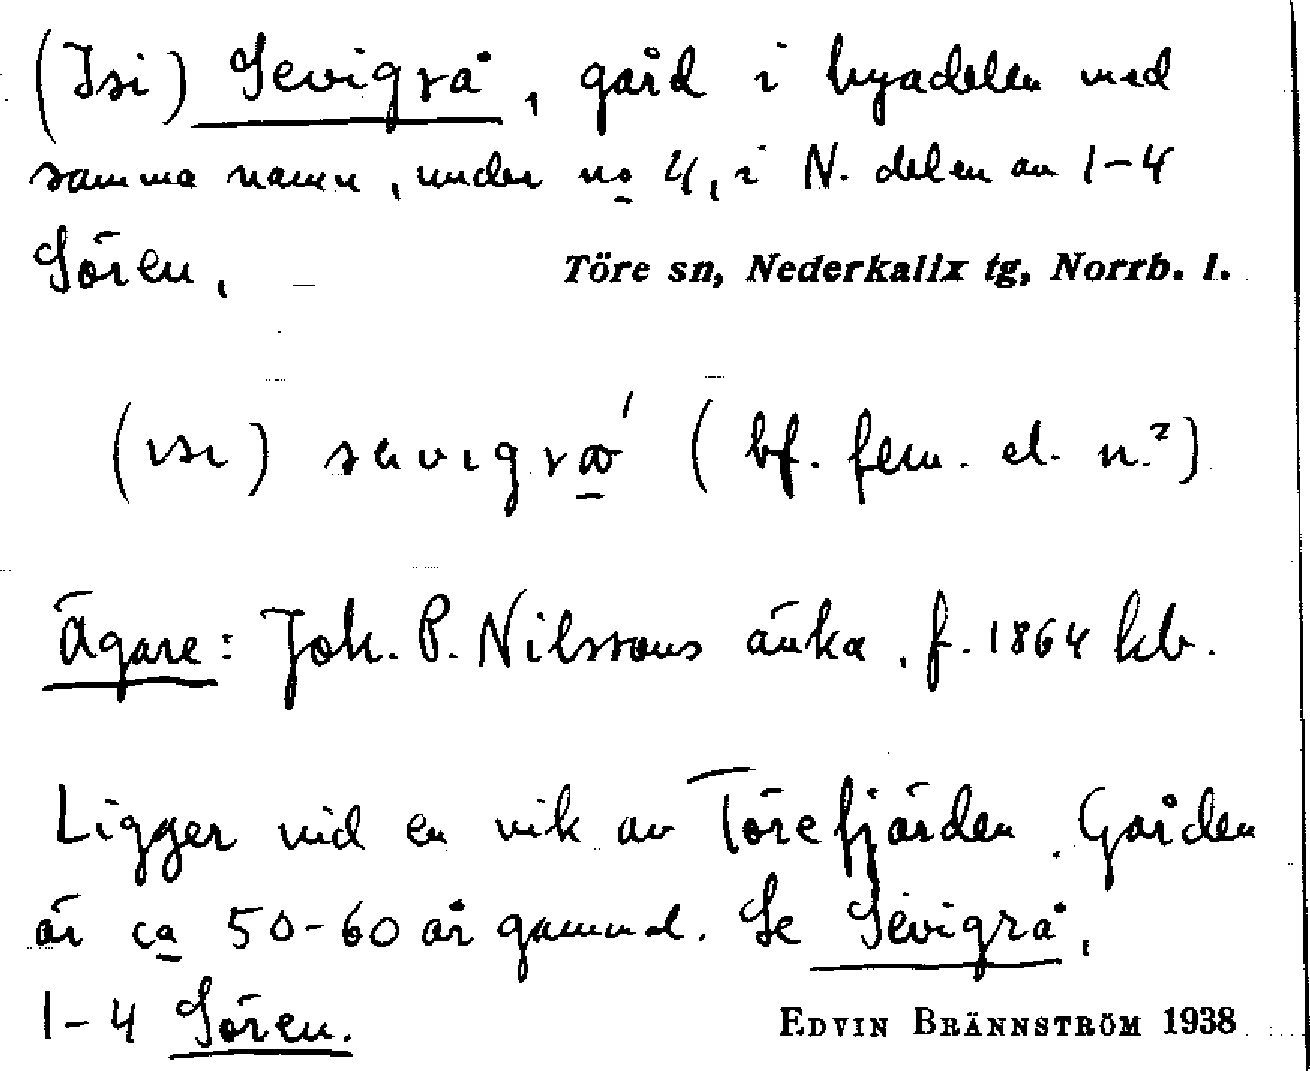 (Isi) Sevigrå, gård i byadelen med
samma namn, under no 4, i N. delen av 1-4
Sören,
Töre sn, Nederkalix tg, Norrb. l.
(ɪsɪ) (bf. fem. el. n.?)
Ägare: Joh. P. Nilssons änka, f. 1864 kb.
Ligger vid en vik av Törefjärden. Gården
är ca 50-60 år gammal. Se Sevigrå,
1-4 Sören.
EDVIN BRÄNNSTRÖM 1938